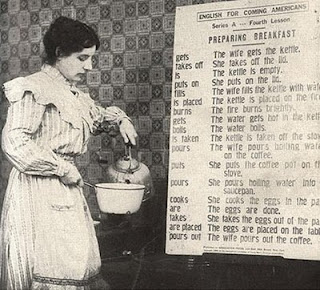 ENGLISH FOR COMING AMERICANS
Series A — Fourth Lesson
PREPARING BREAKFAST
gets The wife gets the kettle.
takes off She takes off the lid.
is The kettle is empty.
puts on She puts on the lid.
fills The wife fills the kettle with water
is placed The kettle is placed on the fire
burns The fire burns brightly.
gets The water gets hot in the kettle
boils The water boils.
is taken The kettle is taken off the stove
pours The wife pours boiling water
on the coffee.
puts She puts the coffee pot on the
stove.
pours She pours boiling water into
saucepan.
cooks She cooks the eggs in the
are The eggs are done.
takes She takes the eggs out of the pan
are placed The eggs are placed on the table
pours out The wife pours out the coffee.